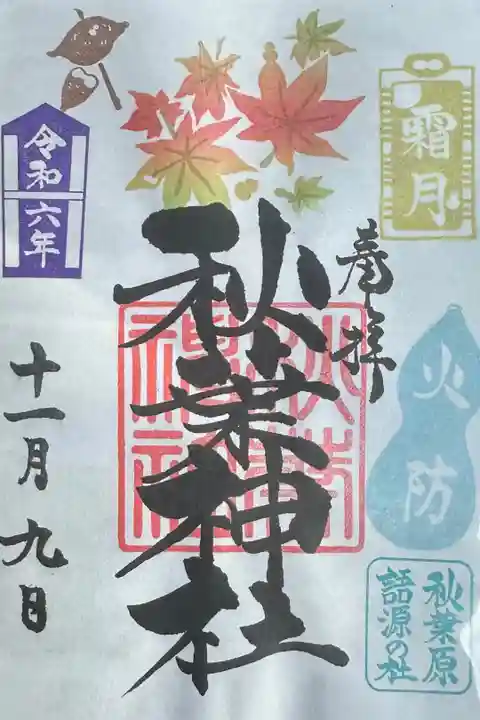 霜月
奉拝
火防
秋葉原
語源の社
秋葉神社
秋葉
神社
令和六年
十一月九日